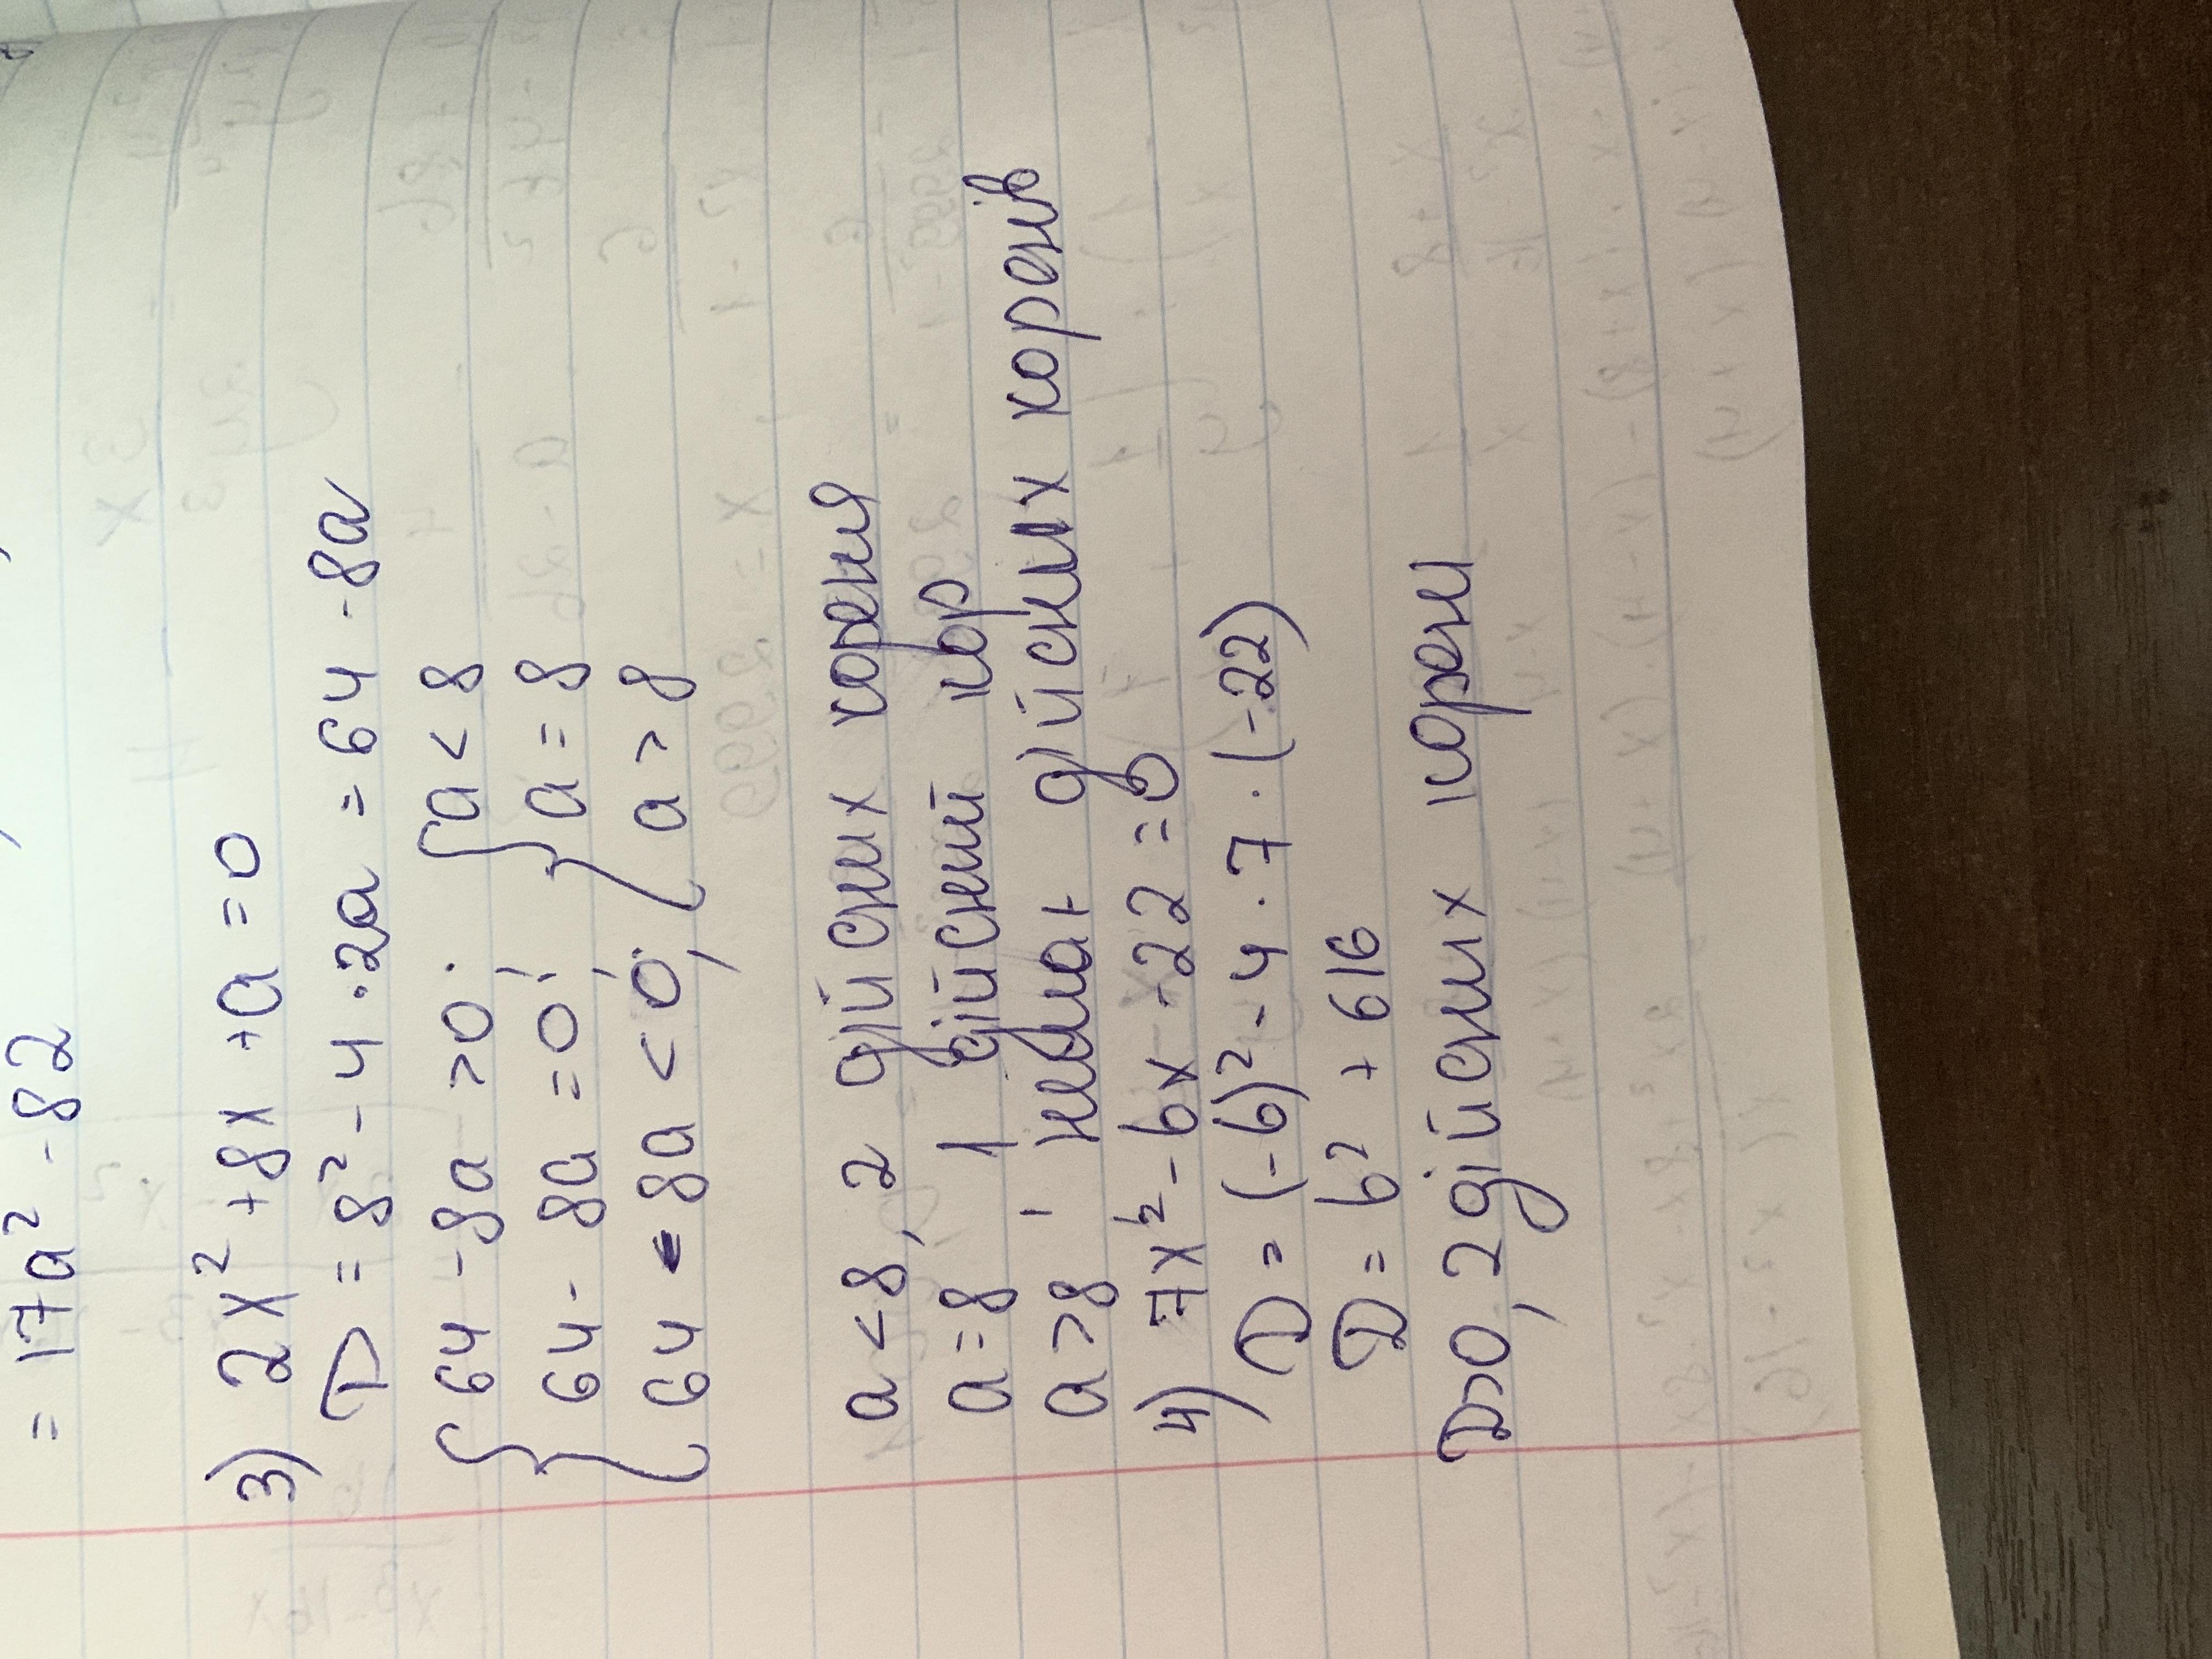 = 17a² - 82
3) 2x² + 8x + a = 0
D = 8² - 4 · 2a = 64 - 8a
{ 64 - 8a > 0; { a < 8
64 - 8a = 0; a = 8
64 - 8a < 0; a > 8
a < 8, 2 дійсних кореня
a = 8, 1 дійсний кор
a > 8, нема дійсних коренів
4) 7x² - bx - 22 = 0
D = (-b)² - 4 · 7 · (-22)
D = b² + 616
D>0, 2 дійсних корени